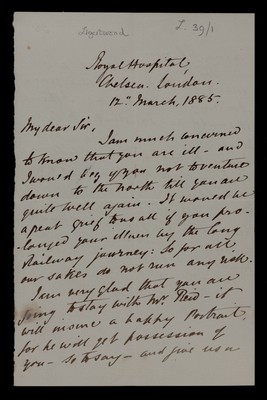 L. 39/1
Royal Hospital,
Chelsea. London.
12th March, 1885.
My dear Sir,
I am much concerned
to know that you are ill - and
I would beg of you not to venture
down to the north till you are
quite well again. It would be
a great grief to us all if you pro-
-longed your illness by the long
Railway journey: So for all
our sakes do not run any risk.
I am very glad that you are
going to stay with Mr. Reid - it
will insure a happy Portrait,
for he will get possession of
you - so to say - and give us a